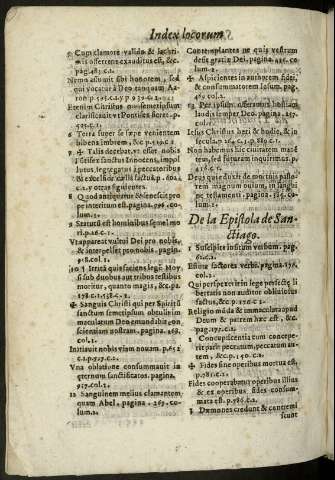 Index locorum
5 Cum clamore valido & lachri-
mis offerens exauditus est, &c.
pag.485.c.1.
Nemo assumit sibi honorem, sed
qui vocatur à Deo tanquam Aa-
ron
Etenim Christus non semetipsum
clarificavit vt Pontifex fieret. p.
6 Terra super se sæpe venientem
bibens imbrem, &c. p.
Talis decebat, vt esset nobis
Pontifex sanctus Innocens, impol
lutus, segregatus à peccatoribus
& excelsior cælis factus.p. 604
c.1.y otras siguientes.
8 Quod antiquatur & senescit pro
pe interitum est.pagina. lum.
9 Statutũ est hominibus semel mo
ri.p.
Vt appareat vultui Dei pro nobis,
& interpellet pro nobis. pagin.
918.col.1.
10 Irritã quis faciens legẽ Moy
si sub duobus aut tribus testibus
moritur, quanto magis, &c. pa.
178.c.1.
Sanguis Christi qui per Spiritũ
sanctum semetipsum obtulit im
maculatum Deo emundabit con
scientiam nostram. pagina. 469.
col.
Initiavit nobis viam novam. p.
Vna oblatione consummavit in
æternum sanctificatos. pagin.
917.col.1.
12 Sanguinem melius clamantem
quam Abel. pagina. 265. colum.
Contemplantes ne quis vestrum
desit gratiæ Dei. pagina. colum.
Aspicientes in autorem fidei,
& consummatorem Iesum. pag.
col.
13 Per ipsum offeramus hostiam
laudis semper Deo. pagina.
colum.
Iesus Christus heri & hodie, & in
sæcula.p 264.c.1.p 889.c.1.
Non habemus hic civitatem manẽ
tem, sed futuram inquirimus. p.
416.c.1.
Deus qui eduxit de mortuis pasto-
rem magnum ovium, in sangui
ne testamenti. pagina. colum.
De la Epistola de San-
ctiago.
1 Suscipite insitum verbum. pag.
61.c.1.
Estote factores verbi. pagina 178.
col.
Qui perspexerit in lege perfectę li
bertatis non auditor obliviosus
factus, &c p 176.c 1.
Religio mũda & immaculata apud
Deum & patrem hæc est, &c.
pag.
1 Concupiscentia cum concepe-
rit parit peccatum, peccatum au
tem, &c.p.
Fides sine operibus mortua est.
p.781.c.1.
Fides cooperabatur operibus illius
& ex operibus fides consum-
mata est. p.
2 Dæmones credunt & contremi
scunt